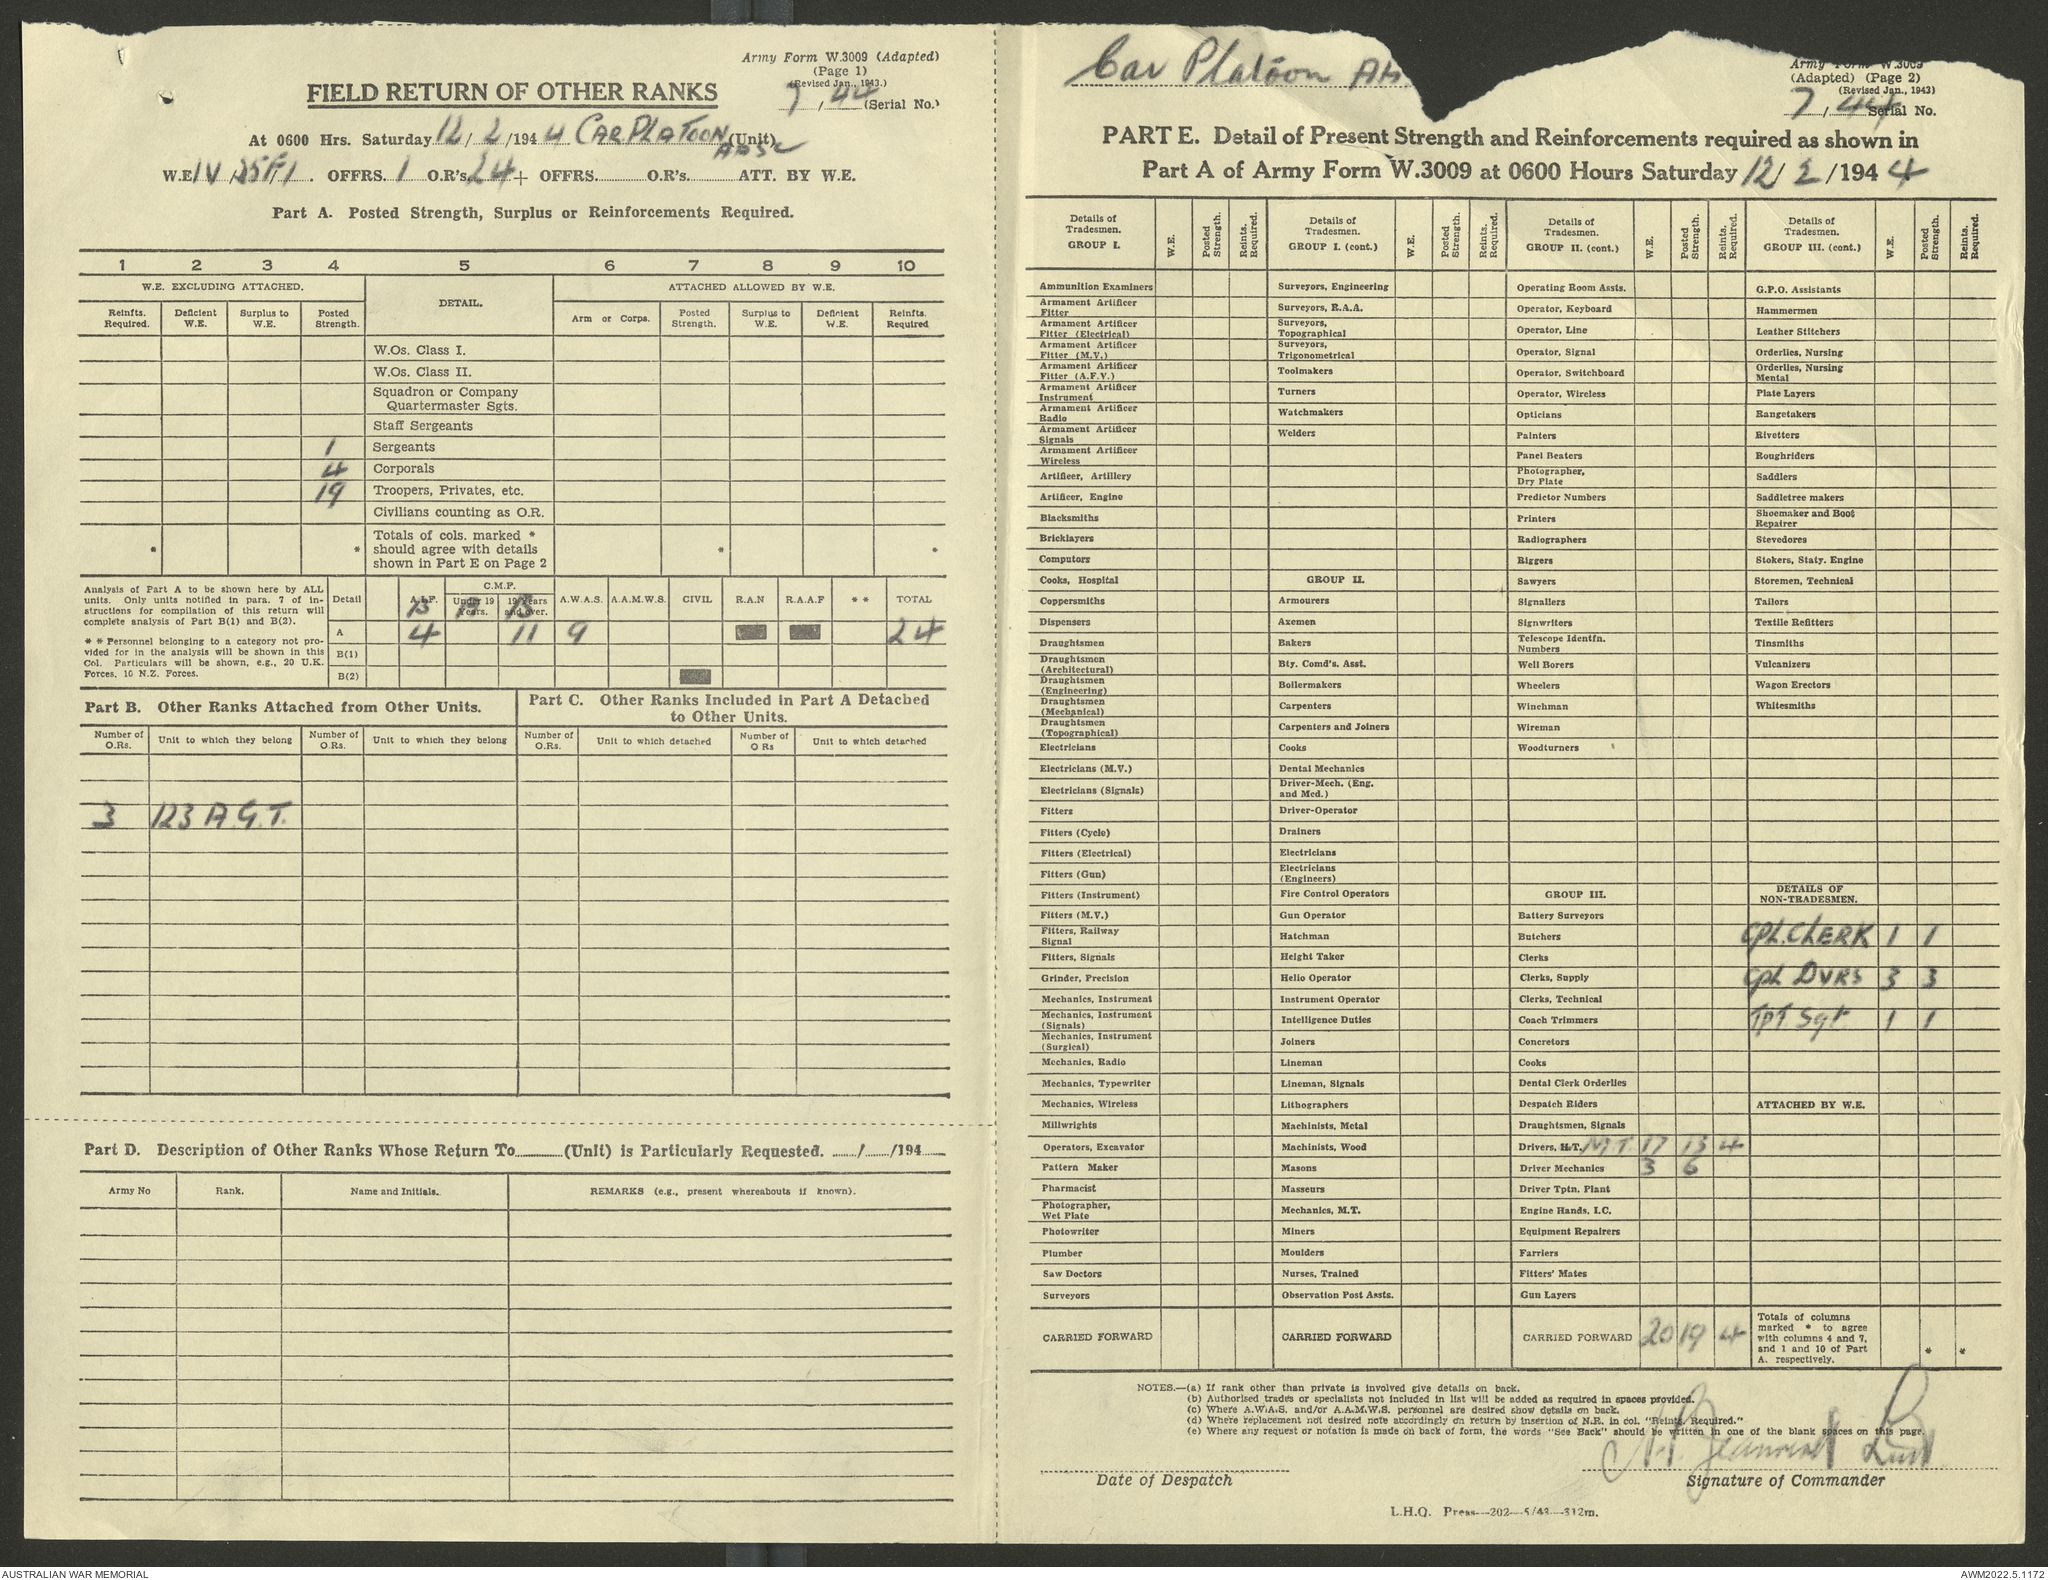 Army Form W.3009 (Adapted)
(Page 1)
(Revised Jan., 1943.)
7 / 44 (Serial No.)
FIELD RETURN OF OTHER RANKS
At 0600 Hrs. Saturday 12/ 2 /194 4 CAR PLATOON (Unit)
W.E. IV OFFRS. 1 O.R's. 24 + OFFRS. O.R's. ATT. BY W.E.
Part A. Posted Strength, Surplus or Reinforcements Required.
1 2 3 4 5 6 7 8 9 10
W.E. EXCLUDING ATTACHED. DETAIL. ATTACHED ALLOWED BY W.E.
Reinfts. Required. Deficient W.E. Surplus to W.E. Posted Strength. Arm or Corps. Posted Strength. Surplus to W.E. Deficient W.E. Reinfts. Required
W.Os. Class I.
W.Os. Class II.
Squadron or Company
Quartermaster Sgts.
Staff Sergeants
1 Sergeants
4 Corporals
19 Troopers, Privates, etc.
Civilians counting as O.R.
Totals of cols. marked *
* * should agree with details * *
shown in Part E on Page 2
Analysis of Part A to be shown here by ALL
units. Only units notified in para. 7 of in-
structions for compilation of this return will
complete analysis of Part B(1) and B(2).
* * Personnel belonging to a category not pro-
vided for in the analysis will be shown in this
Col. Particulars will be shown, e.g., 20 U.K.
Forces, 10 N.Z. Forces.
C.M.F.
Detail A.I.F. Under 19 Years. 19 Years and over. A.W.A.S. A.A.M.W.S. CIVIL R.A.N R.A.A.F * * TOTAL
A 4 11 9 24
B(1)
B(2)
Part B. Other Ranks Attached from Other Units.
Number of O.Rs. Unit to which they belong Number of O.Rs. Unit to which they belong
3 123 A.G.T.
Part C. Other Ranks Included in Part A Detached
to Other Units.
Number of O.Rs. Unit to which detached Number of O Rs Unit to which detached
Part D. Description of Other Ranks Whose Return To (Unit) is Particularly Requested. / /194
Army No Rank. Name and Initials. REMARKS (e.g., present whereabouts if known).
Car Platoon
Army Form W.3009
(Adapted) (Page 2)
(Revised Jan., 1943)
7 / 44 Serial No.
PART E. Detail of Present Strength and Reinforcements required as shown in
Part A of Army Form W.3009 at 0600 Hours Saturday 12/ 2 /194 4
Details of Tradesmen. GROUP I. W.E. Posted Strength. Reints. Required.
Ammunition Examiners
Armament Artificer Fitter
Armament Artificer Fitter (Electrical)
Armament Artificer Fitter (M.V.)
Armament Artificer Fitter (A.F.V.)
Armament Artificer Instrument
Armament Artificer Radio
Armament Artificer Signals
Armament Artificer Wireless
Artificer, Artillery
Artificer, Engine
Blacksmiths
Bricklayers
Computors
Cooks, Hospital
Coppersmiths
Dispensers
Draughtsmen
Draughtsmen (Architectural)
Draughtsmen (Engineering)
Draughtsmen (Mechanical)
Draughtsmen (Topographical)
Electricians
Electricians (M.V.)
Electricians (Signals)
Fitters
Fitters (Cycle)
Fitters (Electrical)
Fitters (Gun)
Fitters (Instrument)
Fitters (M.V.)
Fitters, Railway Signal
Fitters, Signals
Grinder, Precision
Mechanics, Instrument
Mechanics, Instrument (Signals)
Mechanics, Instrument (Surgical)
Mechanics, Radio
Mechanics, Typewriter
Mechanics, Wireless
Millwrights
Operators, Excavator
Pattern Maker
Pharmacist
Photographer, Wet Plate
Photowriter
Plumber
Saw Doctors
Surveyors
CARRIED FORWARD
Details of Tradesmen. GROUP I. (cont.) W.E. Posted Strength. Reints. Required.
Surveyors, Engineering
Surveyors, R.A.A.
Surveyors, Topographical
Surveyors, Trigonometrical
Toolmakers
Turners
Watchmakers
Welders
GROUP II.
Armourers
Axemen
Bakers
Bty. Comd's. Asst.
Boilermakers
Carpenters
Carpenters and Joiners
Cooks
Dental Mechanics
Driver-Mech. (Eng. and Med.)
Driver-Operator
Drainers
Electricians
Electricians (Engineers)
Fire Control Operators
Gun Operator
Hatchman
Height Taker
Helio Operator
Instrument Operator
Intelligence Duties
Joiners
Lineman
Lineman, Signals
Lithographers
Machinists, Metal
Machinists, Wood
Masons
Masseurs
Mechanics, M.T.
Miners
Moulders
Nurses, Trained
Observation Post Assts.
CARRIED FORWARD
Details of Tradesmen. GROUP II. (cont.) W.E. Posted Strength. Reints. Required.
Operating Room Assts.
Operator, Keyboard
Operator, Line
Operator, Signal
Operator, Switchboard
Operator, Wireless
Opticians
Painters
Panel Beaters
Photographer, Dry Plate
Predictor Numbers
Printers
Radiographers
Riggers
Sawyers
Signallers
Signwriters
Telescope Identfn. Numbers
Well Borers
Wheelers
Winchman
Wireman
Woodturners
GROUP III.
Battery Surveyors
Butchers
Clerks
Clerks, Supply
Clerks, Technical
Coach Trimmers
Concretors
Cooks
Dental Clerk Orderlies
Despatch Riders
Draughtsmen, Signals
Drivers, H.T. M.T. 17 13 4
Driver Mechanics 3 6
Driver Tptn. Plant
Engine Hands, I.C.
Equipment Repairers
Farriers
Fitters' Mates
Gun Layers
CARRIED FORWARD 20 19 4
Details of Tradesmen. GROUP III. (cont.) W.E. Posted Strength. Reints. Required.
G.P.O. Assistants
Hammermen
Leather Stitchers
Orderlies, Nursing
Orderlies, Nursing Mental
Plate Layers
Rangetakers
Rivetters
Roughriders
Saddlers
Saddletree makers
Shoemaker and Boot Repairer
Stevedores
Stokers, Staty. Engine
Storemen, Technical
Tailors
Textile Refitters
Tinsmiths
Vulcanizers
Wagon Erectors
Whitesmiths
DETAILS OF NON-TRADESMEN.
Cpl. CLERK 1 1
Cpl DVRS 3 3
TPT Sgt 1 1
ATTACHED BY W.E.
Totals of columns
marked * to agree
with columns 4 and 7,
and 1 and 10 of Part
A. respectively. * *
NOTES.—(a) If rank other than private is involved give details on back.
(b) Authorised trades or specialists not included in list will be added as required in spaces provided.
(c) Where A.W.A.S. and/or A.A.M.W.S. personnel are desired show details on back.
(d) Where replacement not desired note accordingly on return by insertion of N.R. in col. "Reints. Required."
(e) Where any request or notation is made on back of form, the words "See Back" should be written in one of the blank spaces on this page.
Date of Despatch
Signature of Commander
L.H.Q. Press—202—5/43—312m.
AUSTRALIAN WAR MEMORIAL
AWM2022.5.1172